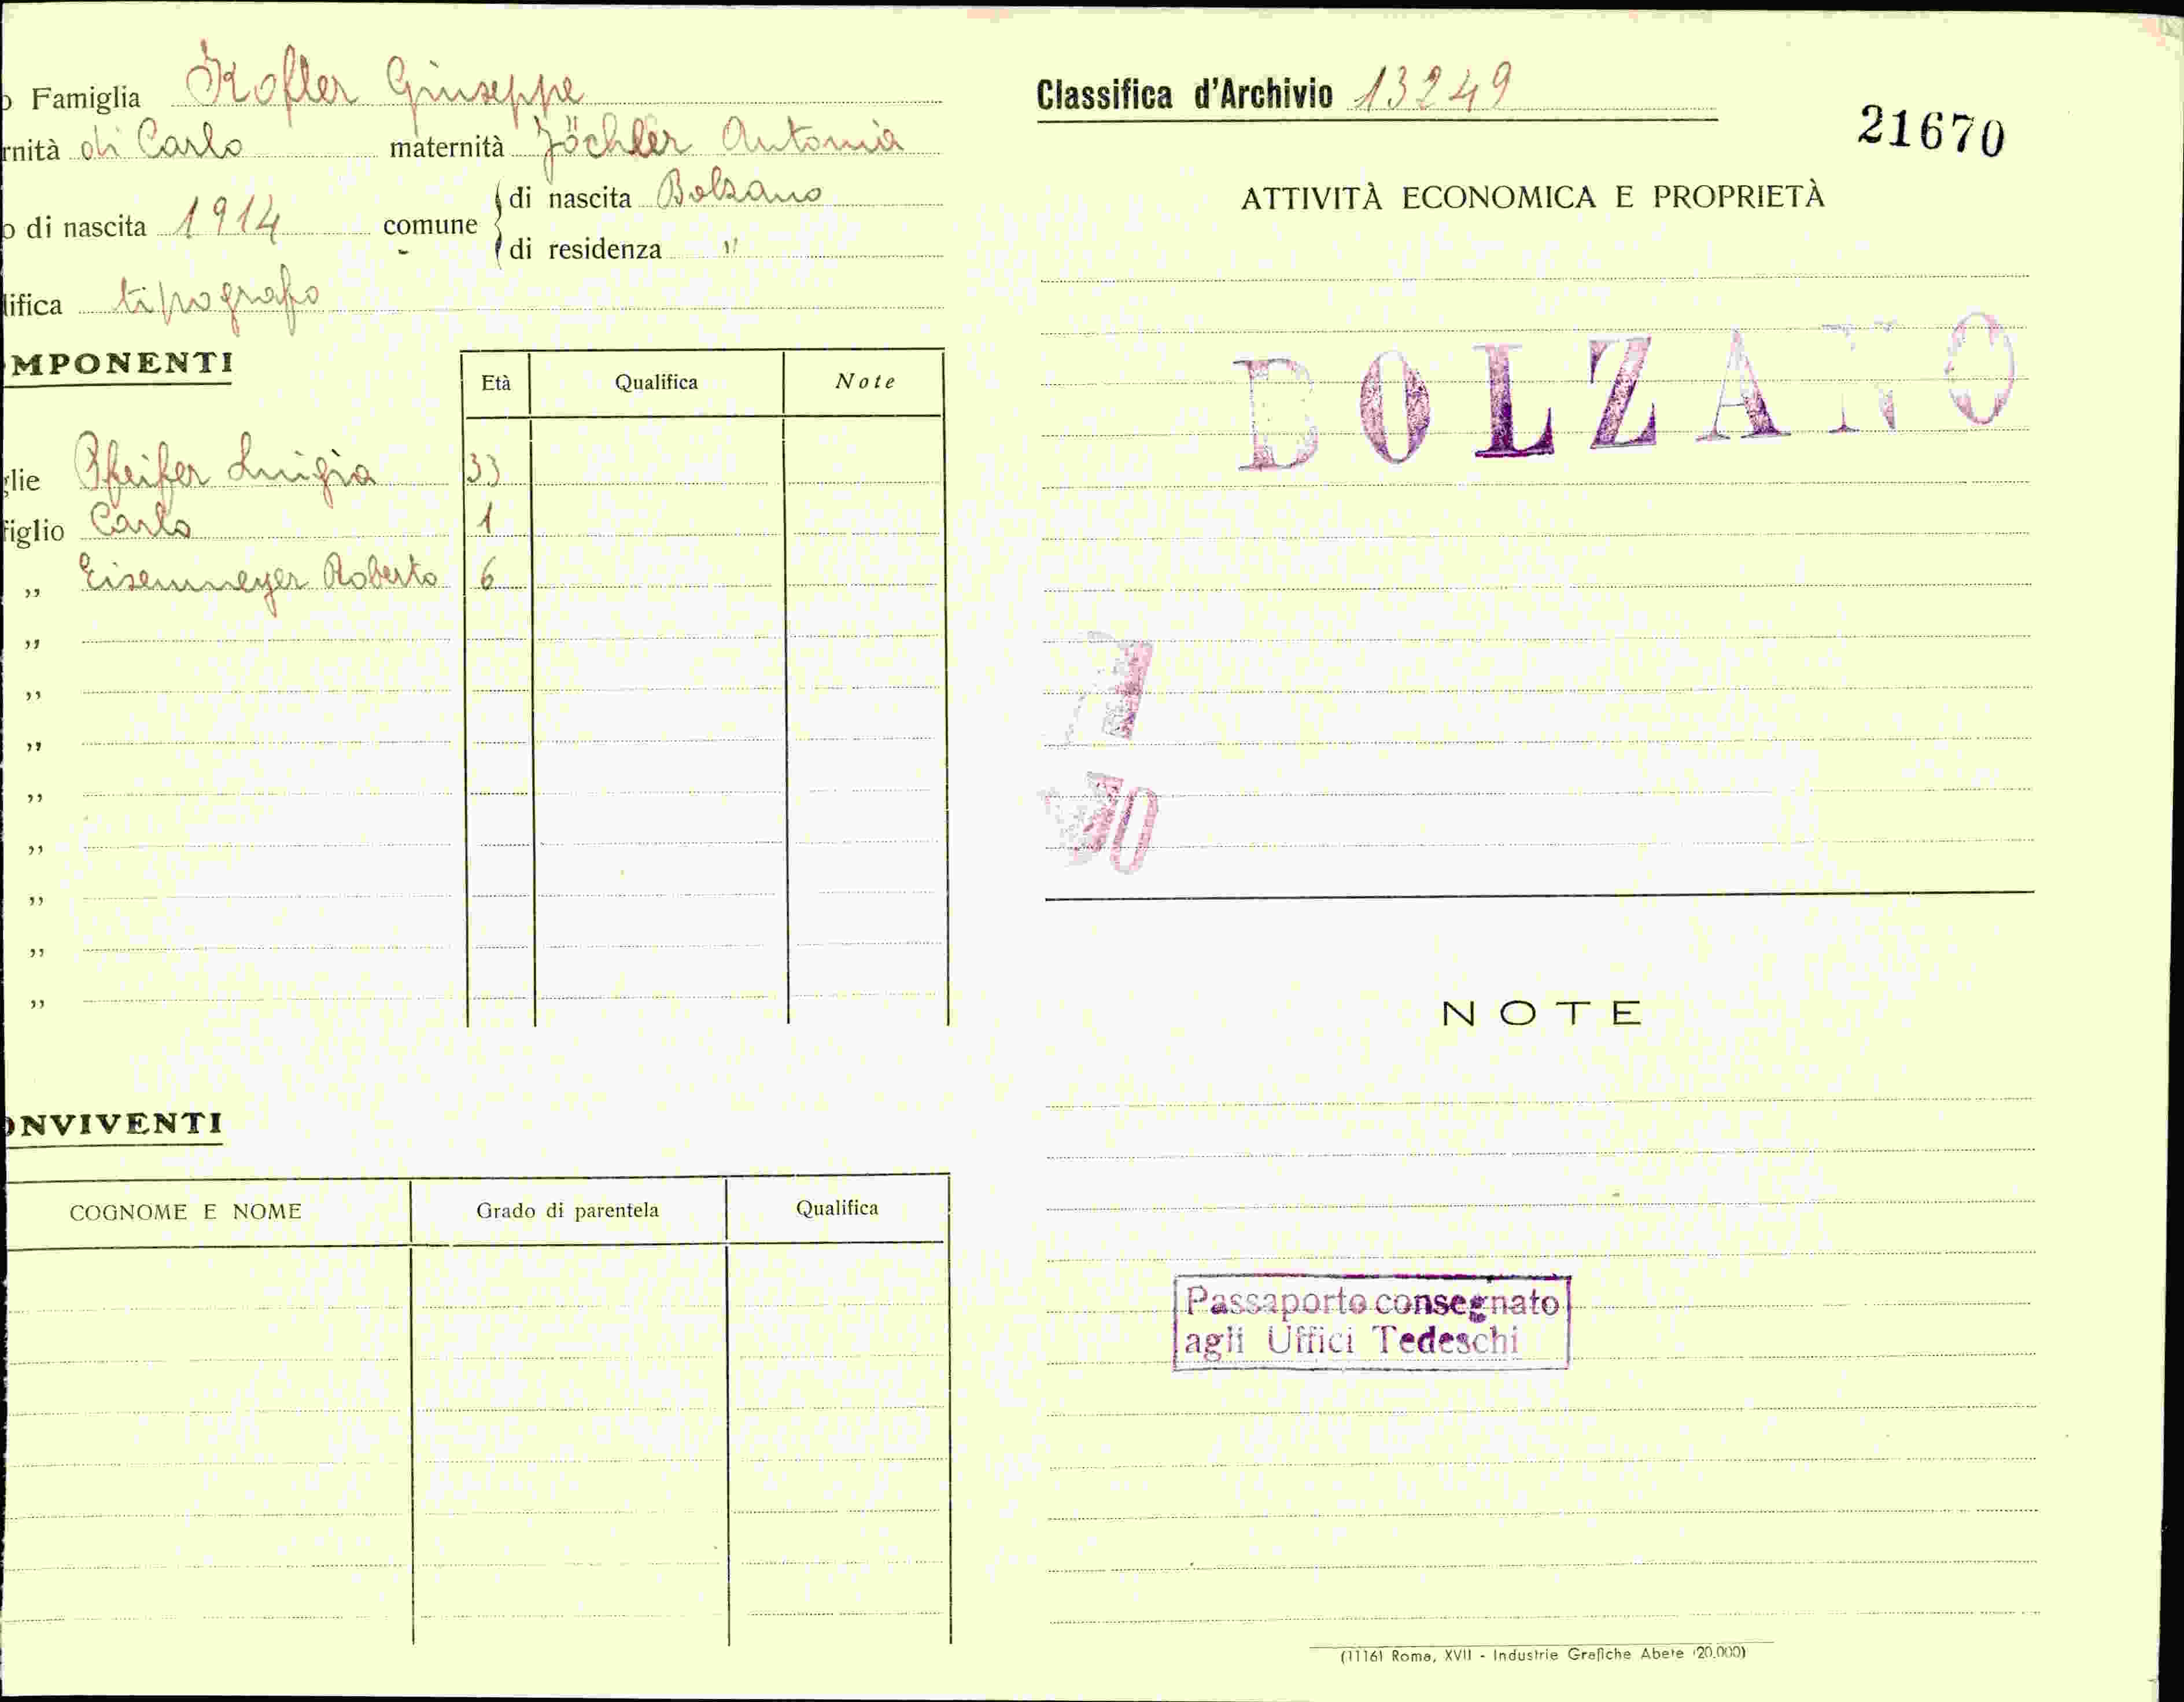 o Famiglia Kofler Giuseppe
rnità di Carlo maternità Jöchler Antonia
o di nascita 1914 comune di nascita Bolzano
di residenza "
lifica tipografo
MPONENTI
Età Qualifica Note
glie Pfeifer Luigia 33
figlio Carlo 1
,, Eisenmeyer Roberto 6
,,
,,
,,
,,
,,
,,
,,
,,
ONVIVENTI
COGNOME E NOME Grado di parentela Qualifica
Classifica d'Archivio 13249
21670
ATTIVITÀ ECONOMICA E PROPRIETÀ
BOLZANO
NOTE
Passaporto consegnato
agli Uffici Tedeschi
(1116) Roma, XVII - Industrie Grafiche Abete (20.000)